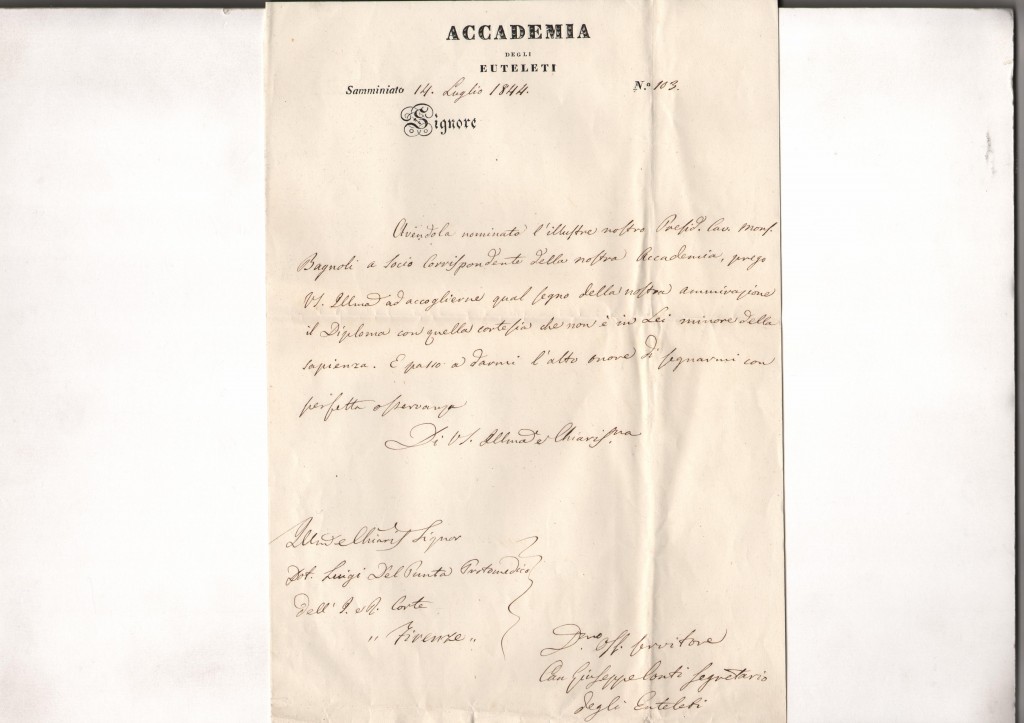 ACCADEMIA
DEGLI
EUTELETI
Samminiato 14. Luglio 1844. N.º 103.
Signore
Avendola nominato l'illustre nostro Presid. Cav. Mons.
Bagnoli a Socio Corrispondente della nostra Accademia, prego
VS. Illma ad accoglierne qual segno della nostra ammirazione
il Diploma con quella cortesia che non è in Lei minore della
sapienza. E passo a darmi l'alto onore di segnarmi con
perfetta osservanza
Di VS. Illma e Chiarisma
Illmo e Chiaris Signor
Dot. Luigi Del Punta Protomedico
dell' I. e R. Corte
" Firenze "
Dmo Oss. servitore
Can Giuseppe Conti Segretario
degli Euteleti